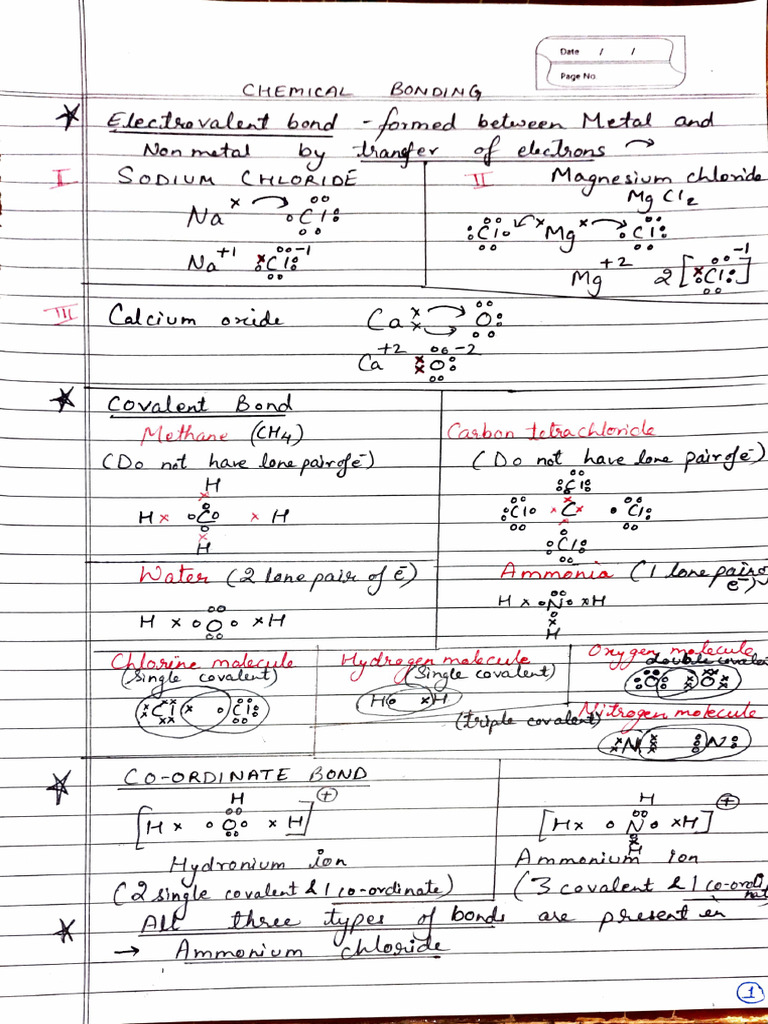 Date / /
Page No.
CHEMICAL BONDING
Electrovalent bond - formed between Metal and
Non metal by transfer of electrons →
I SODIUM CHLORIDE
Na x Cl
Na +1 x Cl -1
II Magnesium chloride
MgCl2
Cl x Mg x Cl
Mg +2 2 [x Cl] -1
III Calcium oxide Ca x x O
Ca +2 x x O -2
Covalent Bond
Methane (CH4)
(Do not have lone pair of e-)
H
x
H x C x H
x
H
Carbon tetrachloride
(Do not have lone pair of e-)
Cl
Cl x C x Cl
x
Cl
Water (2 lone pair of e-)
H x O x H
Ammonia (1 lone pair of
e-)
H x N x H
x
H
Chlorine molecule
(single covalent)
Cl x Cl
Hydrogen molecule
(single covalent)
H x H
Oxygen molecule
double covale
O x x O
Nitrogen molecule
(triple covalent)
N x x x N
CO-ORDINATE BOND
H
[H x O x H] +
Hydronium ion
(2 single covalent & 1 co-ordinate)
H
[H x N x H] +
x
H
Ammonium ion
(3 covalent & 1 co-ordi
nat
All three types of bonds are present in
→ Ammonium chloride
1